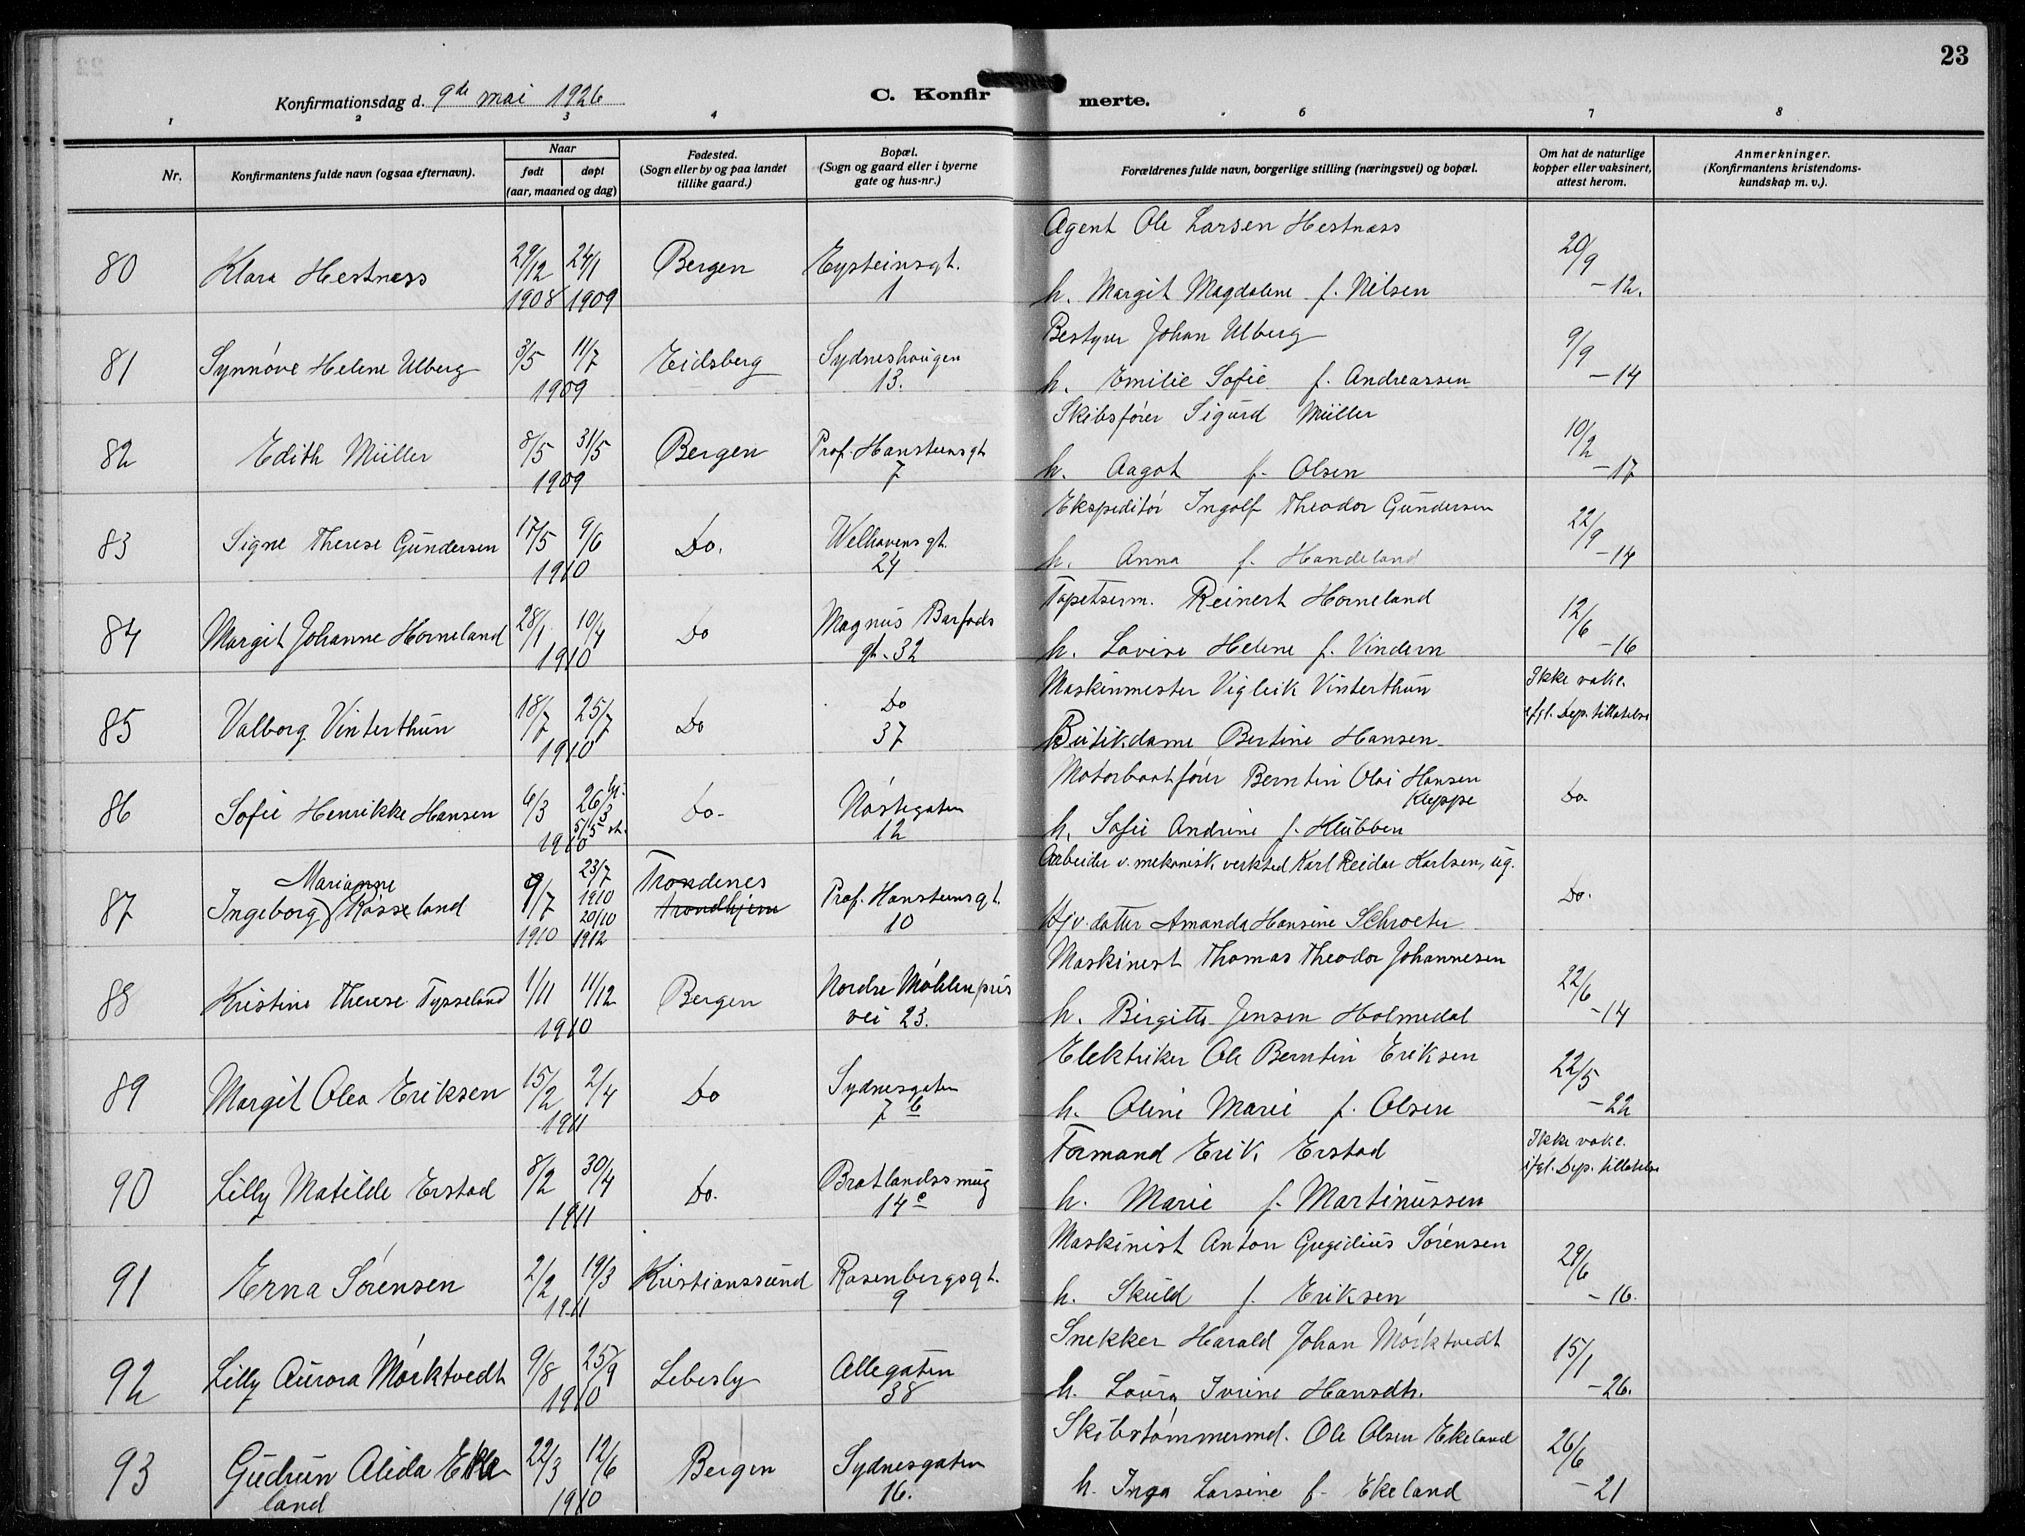 23
Konfirmationsdag d. 9de mai 1926
C. Konfirmerte.
1 2 3 4 6 7 8
Nr.
Konfirmantens fulde navn (ogsaa efternavn).
Naar
født døpt
(aar, maaned og dag)
Fødested.
(Sogn eller by og paa landet
tillike gaard.)
Bopæl.
(Sogn og gaard eller i byerne
gate og hus-nr.)
Forældrenes fulde navn, borgerlige stilling (næringsvei) og bopæl.
Om hat de naturlige
kopper eller vaksinert,
attest herom.
Anmerkninger.
(Konfirmantens kristendoms-
kundskap m. v.).
80 Klara Hestnæss 29/12 1908 24/1 1909 Bergen Eysteinsgt. 1
Agent Ole Larsen Hestnæss
h. Margit Magdalene f. Nilsen 20/9 -12.
81 Synnøve Helene Ulberg 3/5 11/7 1909 Eidsberg Sydneshaugen 13.
Bestyrer Johan Ulberg
h. Emilie Sofie f. Andreassen 9/9 -14
82 Edith Müller 8/5 31/5 1909 Bergen Prof. Hansteensgt. 7
Skibsfører Sigurd Müller
h. Aagot f. Olsen 10/2 -17
83 Signe Therese Gundersen 17/5 9/6 1910 Do. Welhavensgt. 24
Ekspeditør Ingolf Theodor Gundersen
h. Anna f. Handeland 22/9 -14
84 Margit Johanne Horneland 28/1 10/4 1910 Do Magnus Barfods gt. 32
Tapetserm. Reinert Horneland
h. Lovise Helene f. Vindern 12/6 -16
85 Valborg Vinterthun 18/7 25/7 1910 Do Do 37
Maskinmester Vigleik Vinterthun
Butikdame Bertine Hansen Ikke vakc. ifgl. Dep. tillatelse
86 Sofie Henrikke Hansen 6/3 26/3 hj. 5/5 st. 1910 Do. Nøstegaten 12
Motorbaatfører Berntin Olai Hansen
Kleppe
h. Sofie Andrine f. Klubben Do.
87 Ingeborg Marianne Røsseland 9/7 1910 23/7 1910 20/10 1912 Trondenes Trondhjem Prof. Hansteensgt. 10
Arbeider v. mekanisk verksted Karl Reidar Karlsen, ug.
Hjv. datter Amanda Hansine Schroeter Do.
88 Kristine Therese Tysseland 1/11 11/12 1910 Bergen Nordre Møhlenpris vei 23.
Maskinist Thomas Theodor Johannesen
h. Birgitte Jensen Holmedal 22/6 -14
89 Margit Olea Eriksen 15/2 2/4 1911 Do Sydnesgaten 7 b
Elektriker Ole Berntin Eriksen
h. Oline Marie f. Olsen 22/5 -22
90 Lilly Matilde Erstad 8/2 30/4 1911 Do. Bratlandssmug 14 c
Formand Erik Erstad
h. Marie f. Martinussen Ikke vakc. ifgl. Dep. tillatelse
91 Erna Sørensen 2/2 19/3 1911 Kristianssund Rosenbergsgt. 9
Maskinist Anton Sørensen
h. Skuld f. Eriksen 29/6 -16.
92 Lilly Aurora Mørktvedt 9/8 25/9 1910 Lebesby Allegaten 38
Snekker Harald Johan Mørktvedt
h. Laura Ivrine Hansdtr. 15/1 -26.
93 Gudrun Alida Ekeland 22/3 12/6 1910 Bergen Sydnesgaten 16.
Skibstømmermd. Ole Olsen Ekeland
h. Inga Larsine f. Ekeland 26/6 -21